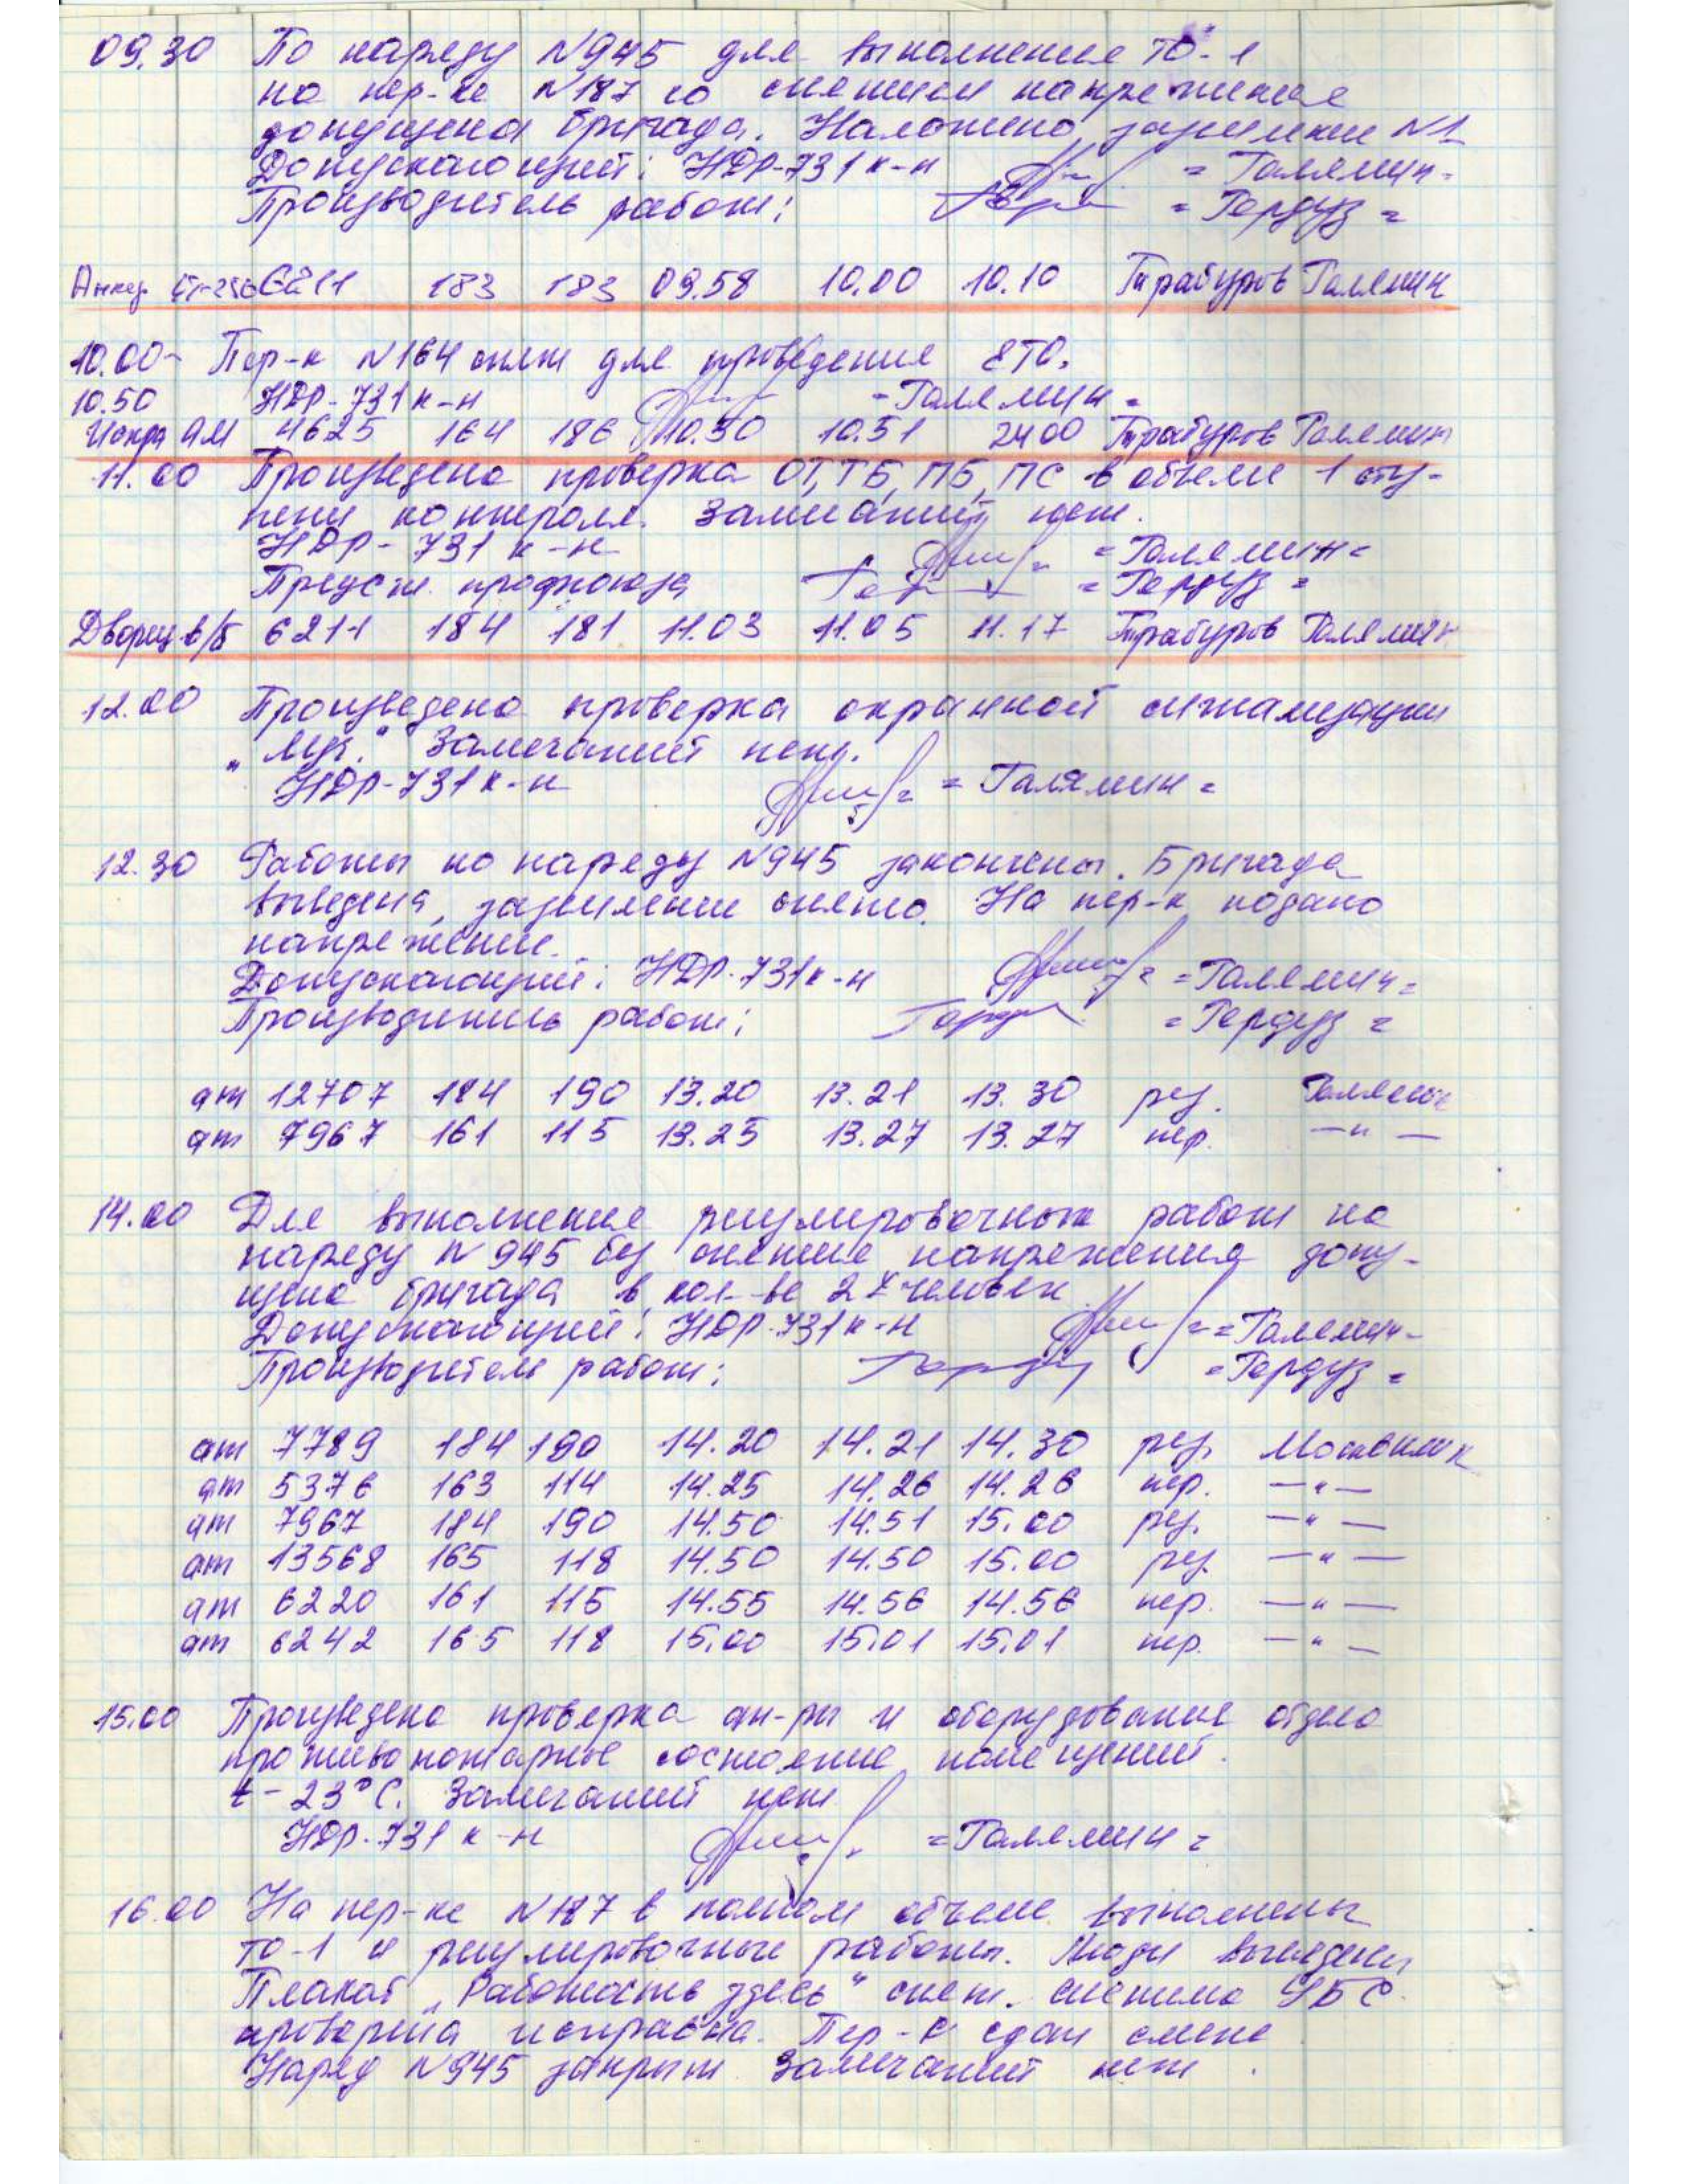 09.30 По наряду N945 для выполнения ТО-1
на пер-ке N187 со снятием напряжения
допущена бригада. Наложено заземление N1
Допускающий: НДР-731 к-н =Галямин=
Производитель работ: =Гердуз=
Анкер 6211 183 183 09.58 10.00 10.10 Трабуров Галямин
10.00- Пер-к N164 снят для проведения ЕТО.
10.50 НДР-731 к-н =Галямин=
Искра АМ 4625 164 186 10.50 10.51 2400 Трабуров Галямин
11.00 Произведена проверка ОТ, ТБ, ПБ, ПС в объеме 1 сту-
пени контроля. Замечаний нет.
НДР-731 к-н =Галямин=
Предст. профсоюза =Гердуз=
Дворец в/б 6211 184 181 11.03 11.05 11.17 Трабуров Галямин
12.00 Произведена проверка охранной сигнализации
Замечаний нет.
НДР-731 к-н =Галямин=
12.30 Работы по наряду N945 закончены. Бригада
выведена, заземление снято. На пер-к подано
напряжение.
Допускающий: НДР-731 к-н =Галямин=
Производитель работ: =Гердуз=
ат 12707 184 190 13.20 13.21 13.30 рез. Галямин
ат 7967 161 115 13.25 13.27 13.27 пер. —"—
14.00 Для выполнения регулировочных работ по
наряду N945 без снятия напряжения допу-
щена бригада в кол-ве 2х человек
Допускающий: НДР-731 к-н =Галямин=
Производитель работ: =Гердуз=
ат 7789 184 190 14.20 14.21 14.30 рез. Москвитк
ат 5376 163 114 14.25 14.26 14.26 пер. —"—
ат 7967 184 190 14.50 14.51 15.00 рез. —"—
ат 13568 165 118 14.50 14.50 15.00 рез. —"—
ат 6220 161 115 14.55 14.56 14.56 пер. —"—
ат 6242 165 118 15.00 15.01 15.01 пер. —"—
15.00 Произведена проверка ап-ры и оборудования отдела
противопожарное состояние помещений.
t-23°С. Замечаний нет
НДР-731 к-н =Галямин=
16.00 На пер-ке N187 в полном объеме выполнены
ТО-1 и регулировочные работы. Люди выведены
Плакат „Работать здесь" снят. система УБС
проверена исправна. Пер-к сдан смене
Наряд N945 закрыт Замечаний нет.